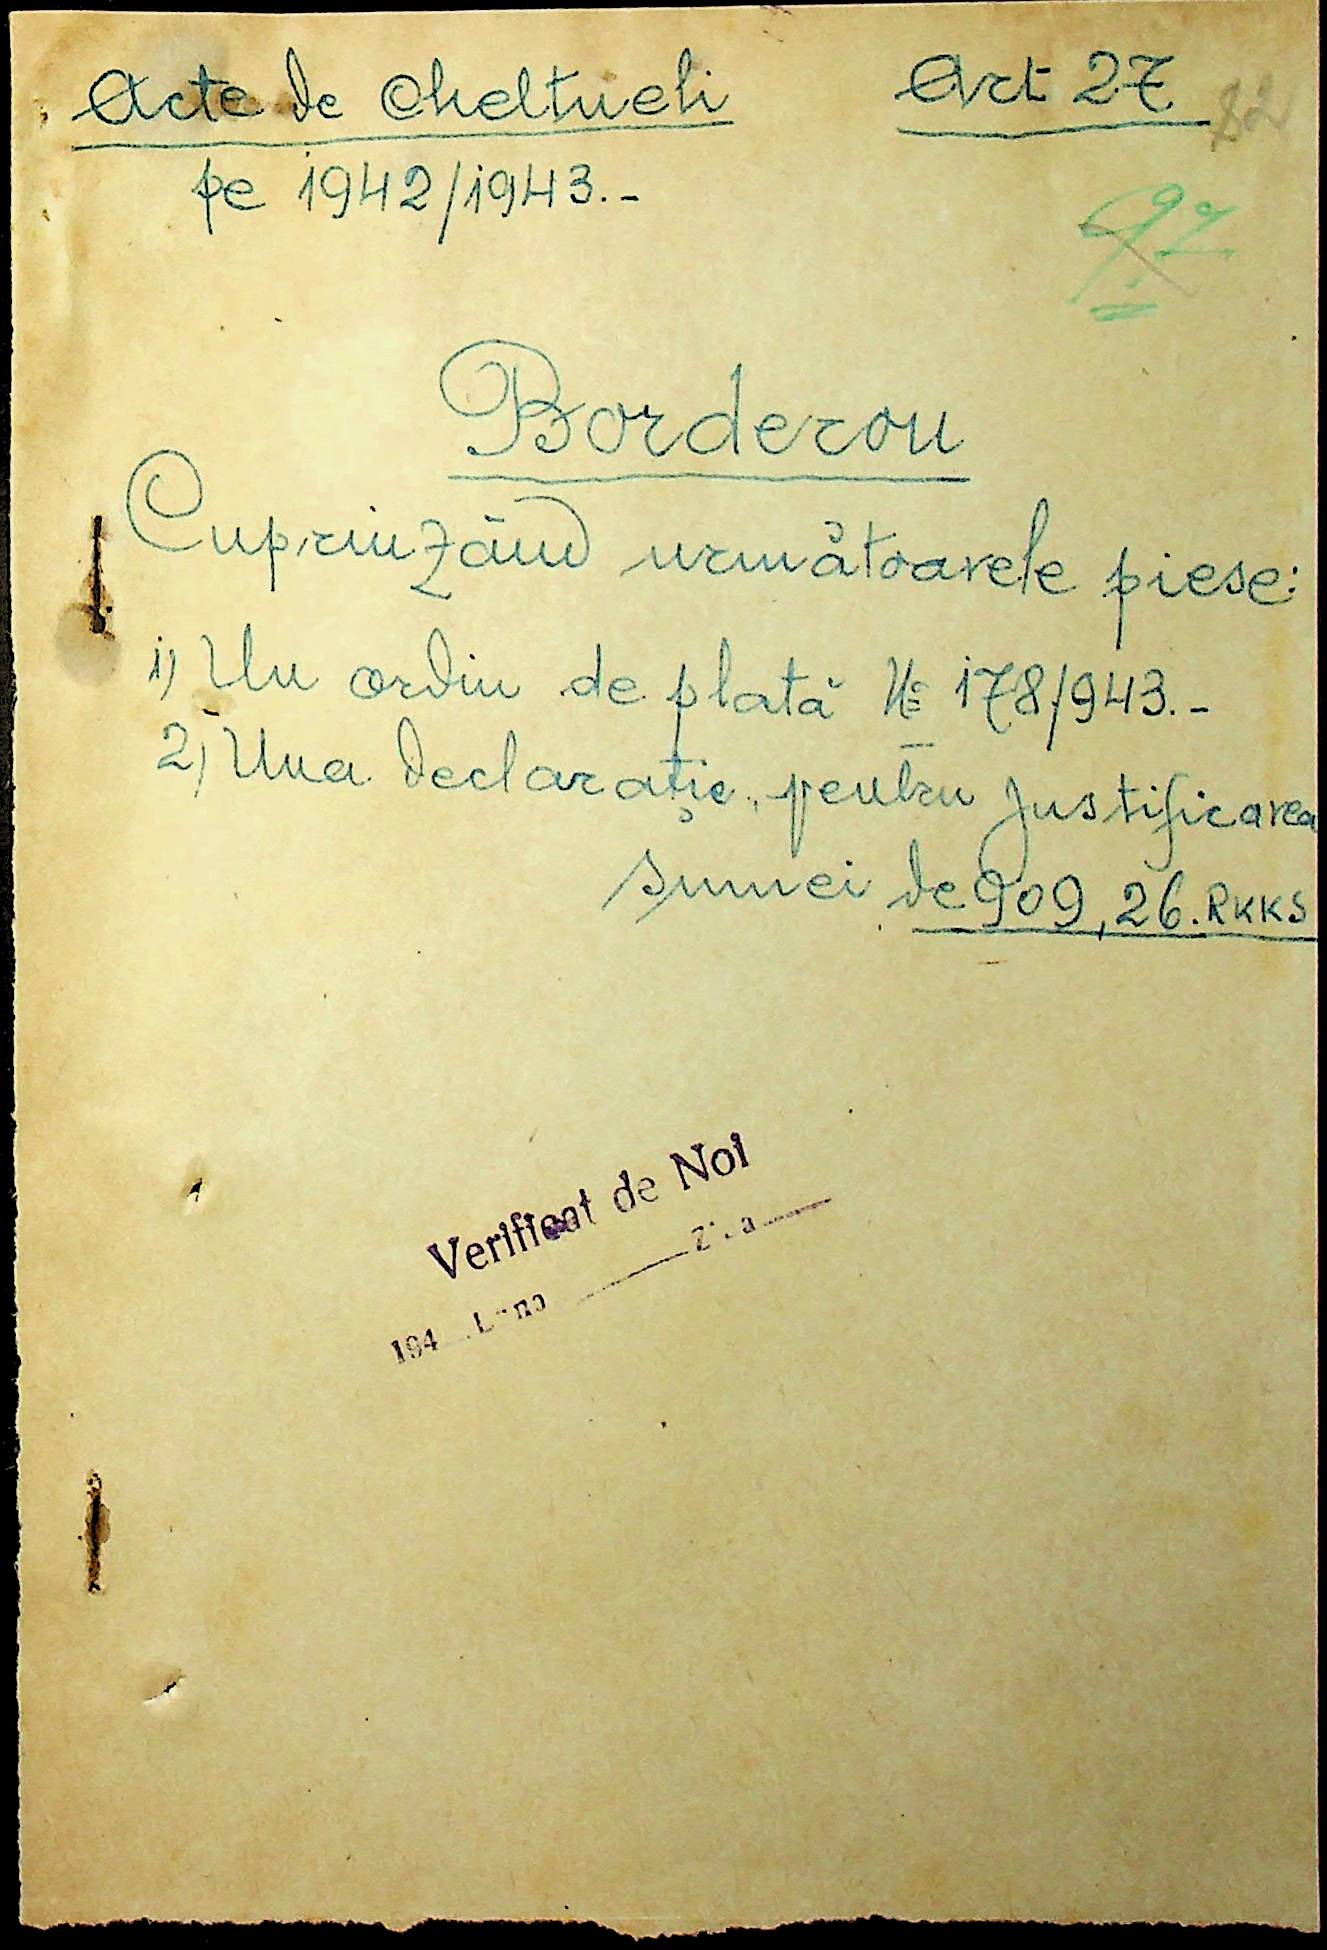 Acte de Cheltueli Art 27
82
pe 1942/1943.-
97
Borderou
Cuprinzând următoarele piese:
1) Un ordin de plată № 178/943.-
2) Una declarație pentru justificarea
sumei de 909,26. RKKS
Verificat de Noi
194 Luna Ziua